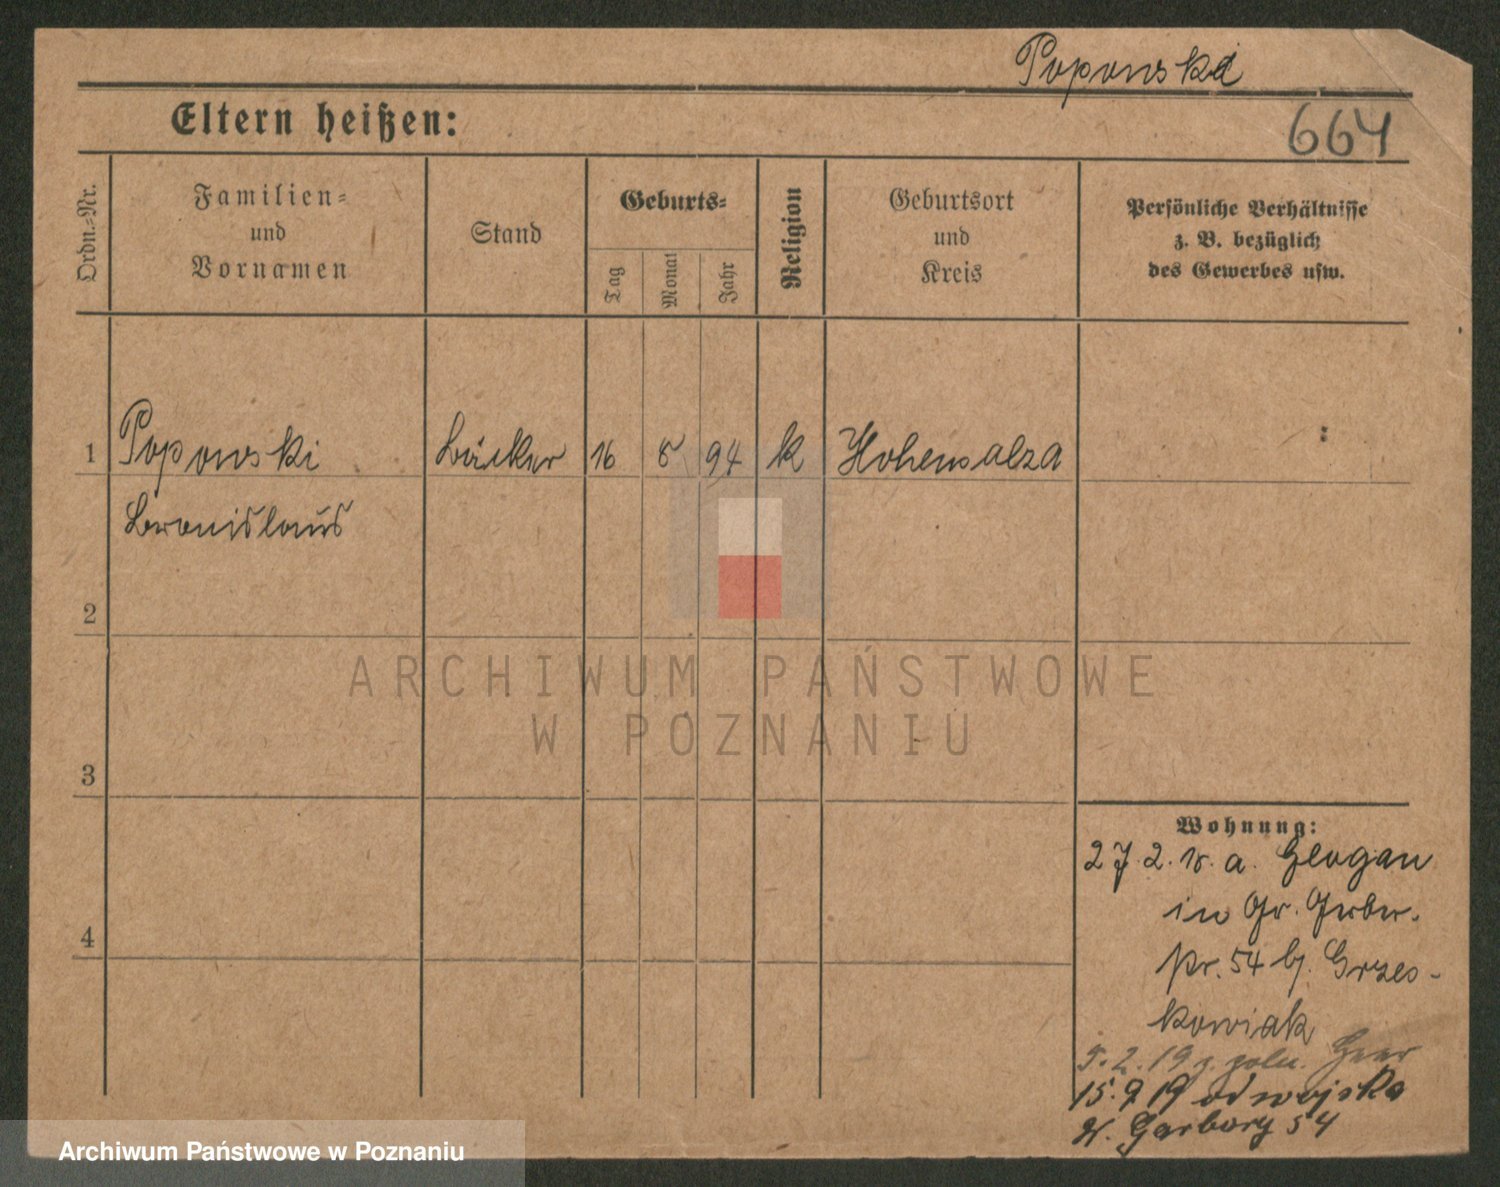 Poponski
Eltern heißen:
664
Ordn.-Nr.
Familien-
und
Vornamen
Stand
Geburts-
Tag
Monat
Jahr
Religion
Geburtsort
und
Kreis
Persönliche Verhältnisse
z. B. bezüglich
des Gewerbes usw.
1
Poponski
Bäcker
16
8
94
k
Hohensalza
Bronislaus
2
3
4
ARCHIWUM PAŃSTWOWE
W POZNANIU
Wohnung:
27.2.18. a. Glogau
in Gr. Gerber-
str. 54 b. Grzes-
kowiak
5.2.19 z. poln. Heer
15.9 19 od wojska
W. Garbary 54
Archiwum Państwowe w Poznaniu